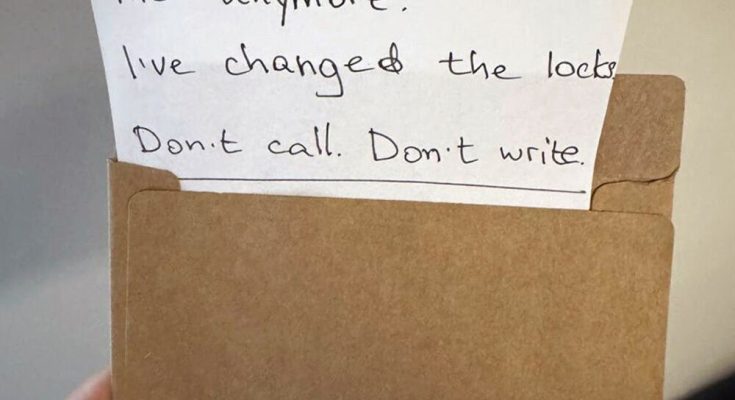 anymore.
I've changed the locks.
Don't call. Don't write.